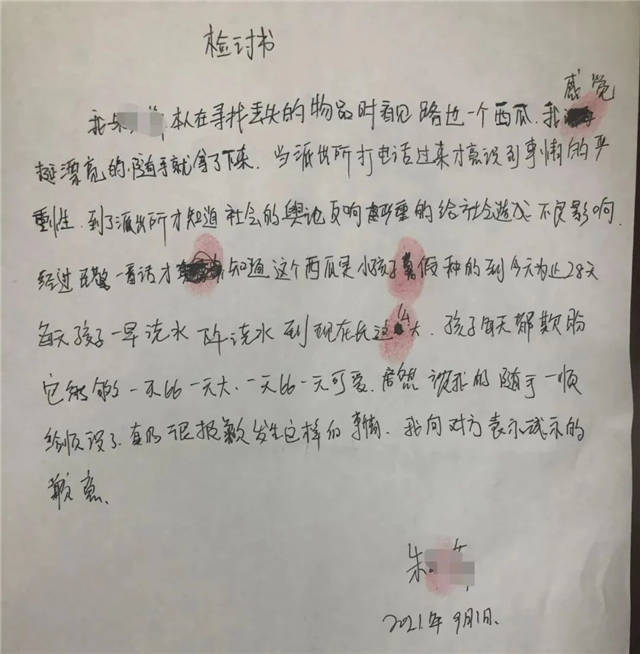 检讨书
感觉
我朱 本人在寻找丢失的物品时看见路边一个西瓜.我
挺漂亮的,随手就拿了下来.当派出所打电话过来才意识到事情的严
重性.到了派出所才知道社会的舆论反响 严重的给社会造成不良影响.
经过民警一番话才 知道这个西瓜是小孩子 暑假种的到今天为止28天
每天孩子一早浇水 下午浇水 到现在长这么大.孩子每天都期盼
它能够一天比一天大.一天比一天可爱.居然被我的随手一顺
给顺没了.真的很抱歉发生这样的事情.我向对方表示诚示的
歉意.
朱
2021年9月1日.